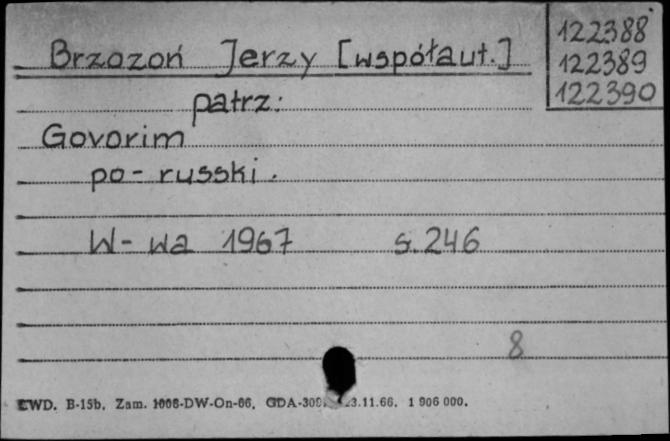 122388
Brzozoń Jerzy [współaut.]
122389
122390
patrz:
Govorim
po-russki.
W-wa 1967 s. 246
8
CWD. B-15b. Zam. 1008-DW-On-66. GDA-30 23.11.66. 1 906 000.